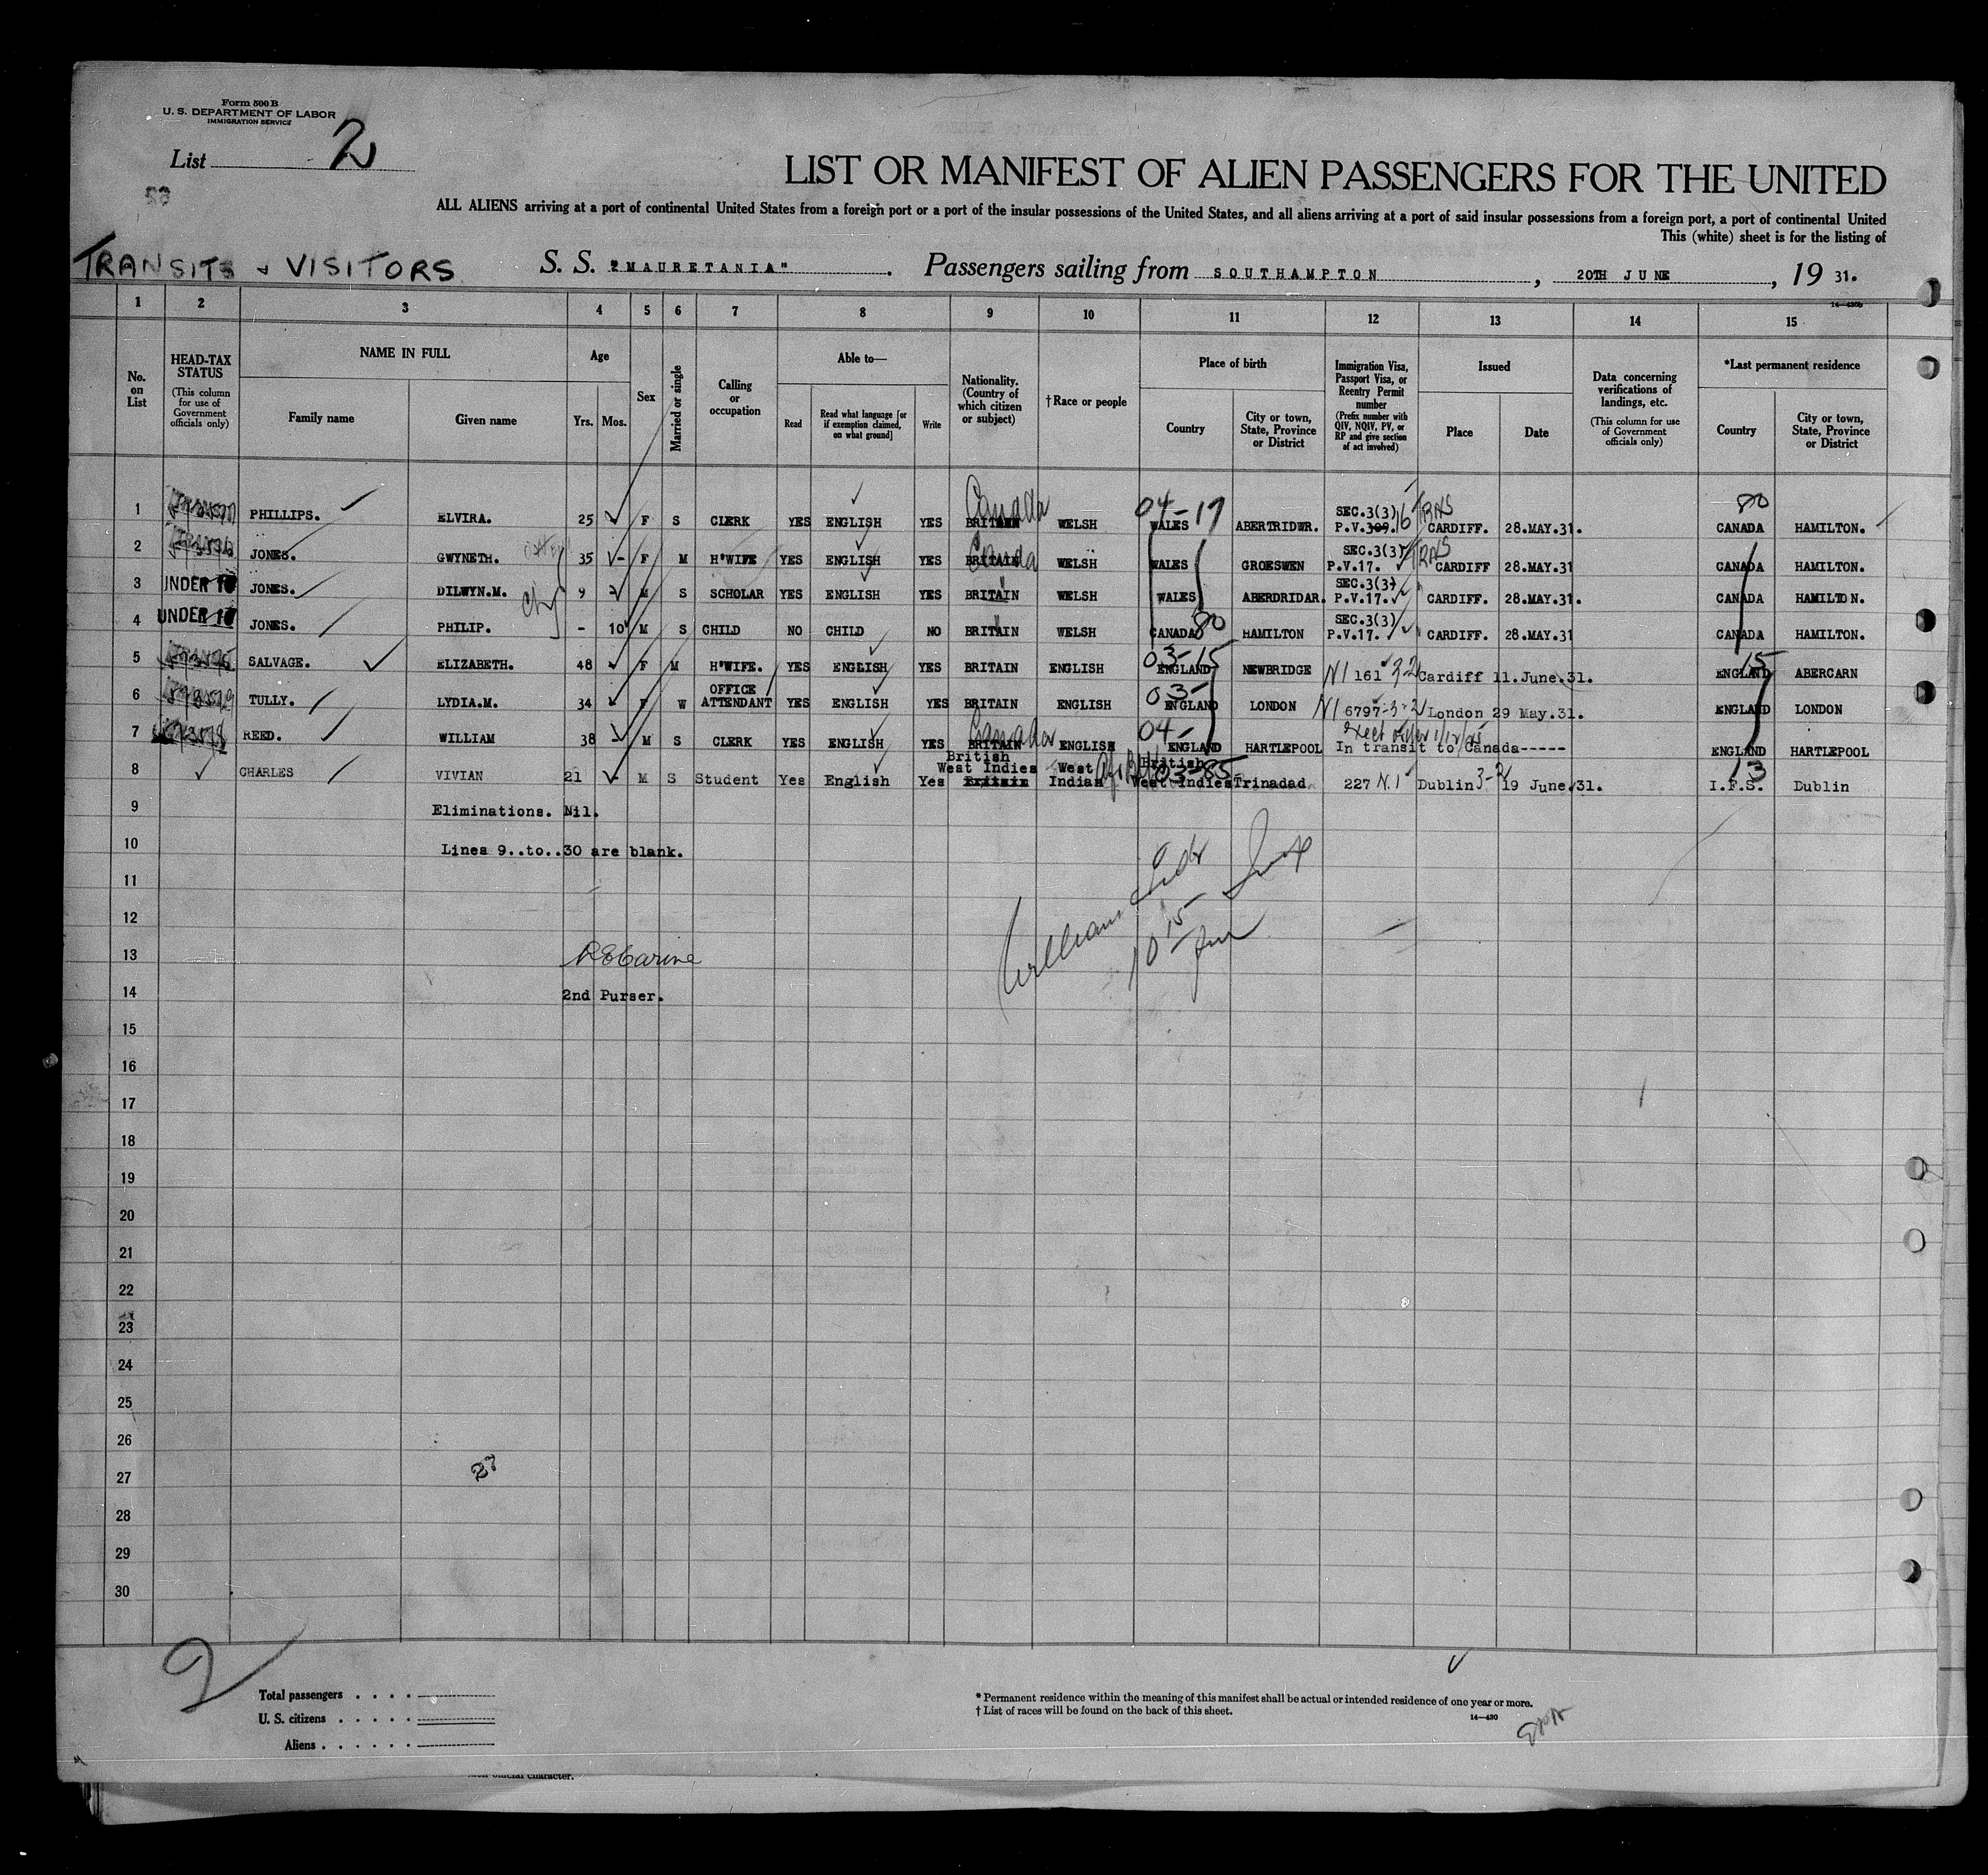 Form 500 B
U. S. DEPARTMENT OF LABOR
IMMIGRATION SERVICE
List 2
LIST OR MANIFEST OF ALIEN PASSENGERS FOR THE UNITED
ALL ALIENS arriving at a port of continental United States from a foreign port or a port of the insular possessions of the United States, and all aliens arriving at a port of said insular possessions from a foreign port, a port of continental United
This (white) sheet is for the listing of
TRANSITS & VISITORS S. S. "MAURETANIA". Passengers sailing from SOUTHAMPTON, 20TH JUNE, 19 31.
14—430b
1 2 3 4 5 6 7 8 9 10 11 12 13 14 15
No. on List
HEAD-TAX STATUS
(This column for use of Government officials only)
NAME IN FULL
Family name
Given name
Age
Yrs. Mos.
Sex
Married or single
Calling or occupation
Able to—
Read
Read what language [or if exemption claimed, on what ground]
Write
Nationality. (Country of which citizen or subject)
†Race or people
Place of birth
Country
City or town, State, Province or District
Immigration Visa, Passport Visa, or Reentry Permit number
(Prefix number with QIV, NQIV, PV, or RP and give section of act involved)
Issued
Place
Date
Data concerning verifications of landings, etc.
(This column for use of Government officials only)
*Last permanent residence
Country
City or town, State, Province or District
1 PHILLIPS. ELVIRA. 25 F S CLERK YES ENGLISH YES BRITAIN Canada WELSH 04-17 WALES ABERTRIDWR. SEC.3(3) P.V.309. 16 TRNS CARDIFF. 28.MAY.31. 80 CANADA HAMILTON.
2 JONES. GWYNETH. 35 - F M H'WIFE YES ENGLISH YES BRITAIN Canada WELSH WALES GROESWEN SEC.3(3) P.V.17. TRNS CARDIFF 28.MAY.31 CANADA HAMILTON.
3 UNDER 16 JONES. DILWYN.M. 9 M S SCHOLAR YES ENGLISH YES BRITAIN WELSH WALES ABERDRIDAR. SEC.3(3) P.V.17. CARDIFF. 28.MAY.31. CANADA HAMILTON.
4 UNDER 16 JONES. PHILIP. - 10 M S CHILD NO CHILD NO BRITAIN WELSH CANADA 80 HAMILTON SEC.3(3) P.V.17. CARDIFF. 28.MAY.31 CANADA HAMILTON.
5 SALVAGE. ELIZABETH. 48 F M H'WIFE. YES ENGLISH YES BRITAIN ENGLISH 03-15 ENGLAND NEWBRIDGE N1 161 3-2 Cardiff 11.June.31. 15 ENGLAND ABERCARN
6 TULLY. LYDIA.M. 34 F W OFFICE ATTENDANT YES ENGLISH YES BRITAIN ENGLISH 03- ENGLAND LONDON N1 6797 3-2 London 29 May.31. ENGLAND LONDON
7 REED. WILLIAM 38 - M S CLERK YES ENGLISH YES BRITAIN Canada ENGLISH 04- ENGLAND HARTLEPOOL In transit to Canada----- ENGLAND HARTLEPOOL
8 CHARLES VIVIAN 21 - M S Student Yes English Yes British West Indies Britain West Indian British West Indies 03-85 Trinadad 227 N.1 Dublin 3-2 19 June.31. 13 I.F.S. Dublin
9 Eliminations. Nil.
10 Lines 9..to..30 are blank.
11
12
13
14 2nd Purser.
15
16
17
18
19
20
21
22
23
24
25
26
27
28
29
30
William
10 15
27
2
Total passengers . . . .
U. S. citizens . . . . .
Aliens . . . . . .
* Permanent residence within the meaning of this manifest shall be actual or intended residence of one year or more.
† List of races will be found on the back of this sheet.
14—430